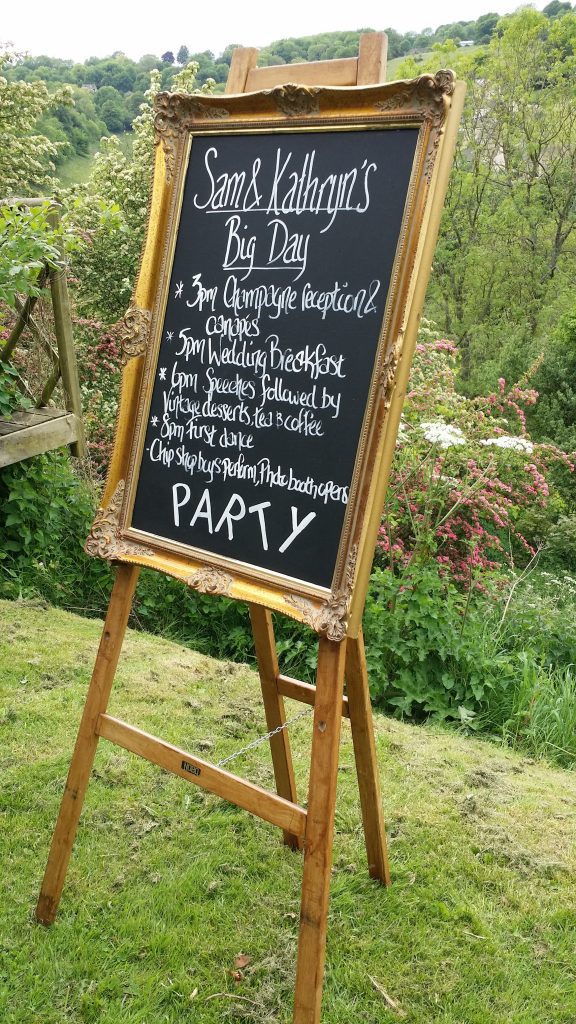 Sam & Kathryn's
Big Day
* 3pm Champagne reception &
canapés
* 5pm Wedding Breakfast
* 6pm Speeches followed by
Vintage desserts, tea & coffee
* 8pm First dance
- Chip shop boys perform, Photo booth opens
PARTY